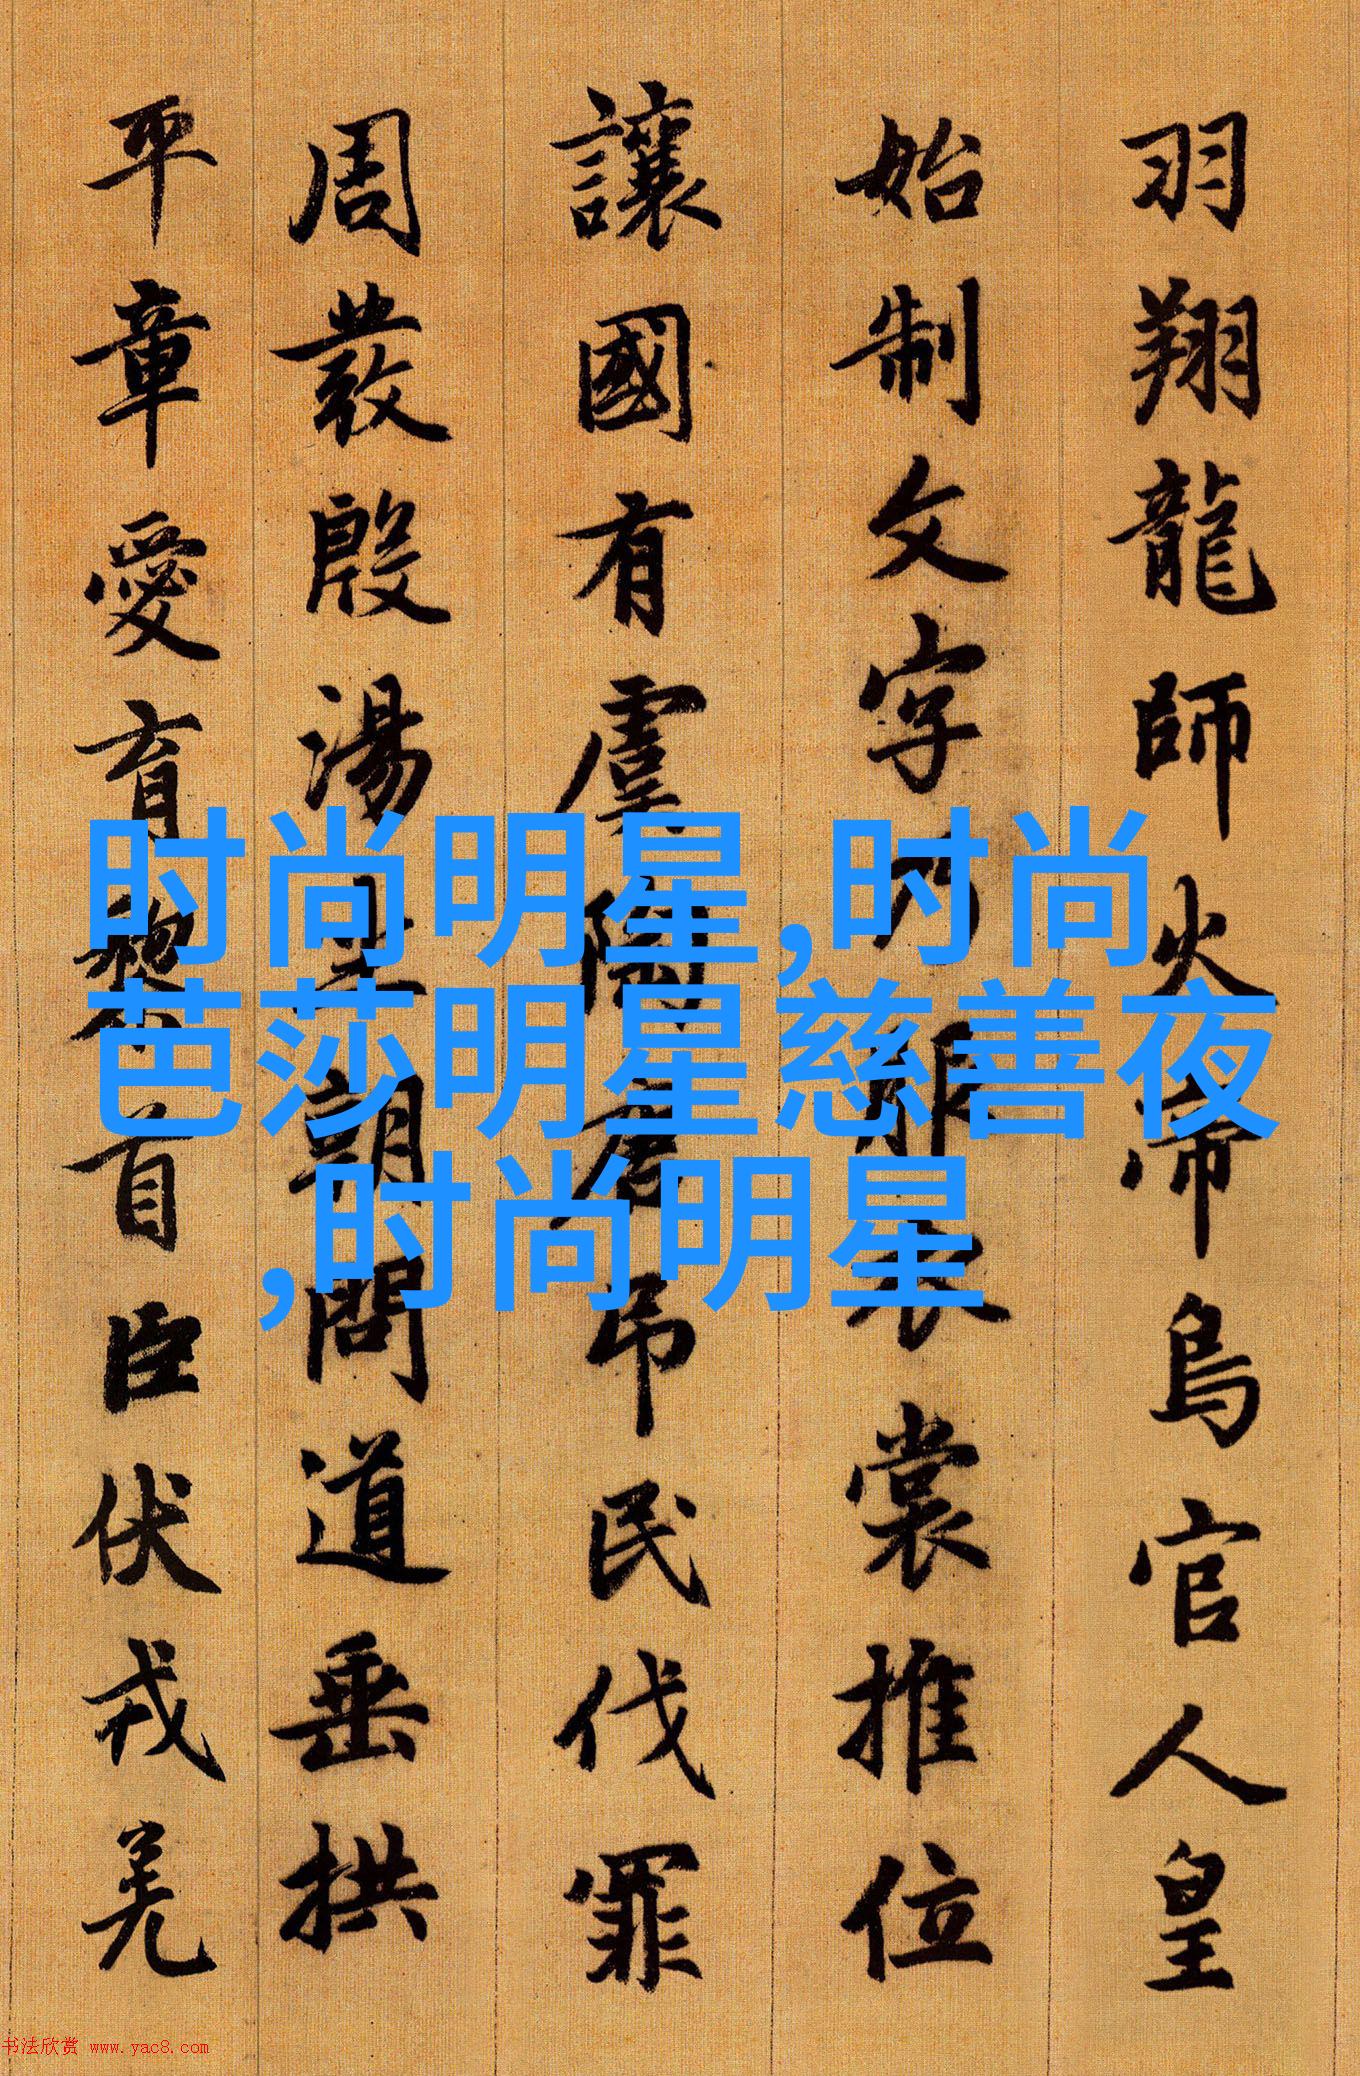 羽翔龍師火帝鳥官人皇
始制文字乃服衣裳推位
讓國有虞陶唐吊民伐罪
周發殷湯坐朝問道垂拱
平章愛育黎首臣伏戎羌
时尚明星,时尚
芭莎明星慈善夜
,时尚明星
书法欣赏 www.yac8.com